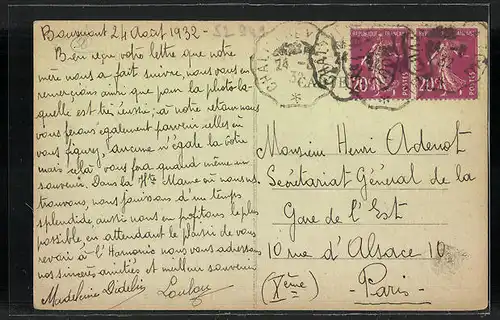 Beaumont 24 Août 1932 -
Bien reçu votre lettre que notre
mère nous a fait suivre, nous vous en
remercions ainsi que pour la photo la-
quelle est très réussie; à notre retour nous
vous ferons également parvenir celles où
vous figurez, aucune n'égale la vôtre
mais cela vous fera quand même un
souvenir. Dans la Hte Marne où nous nous
trouvons, nous jouissons d'un temps
splendide, aussi nous en profitons le plus
possible, en attendant le plaisir de vous
revoir à l'Harmonie nous vous adressons
nos sincères amitiés et meilleur souvenir
Madeleine Loulou
CHAL
24 -8
32
20 POSTES 20 POSTES
Monsieur Henri Adenot
Secrétariat Général de la
Gare de l'Est
10 rue d'Alsace 10
(Xème)
- Paris -